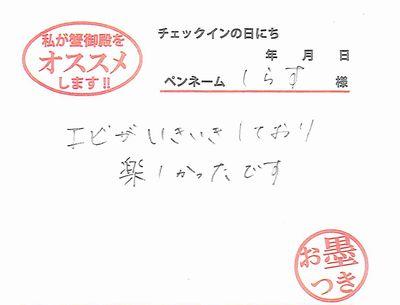 私が蟹御殿を
オススメ
します!!
チェックインの日にち
年 月 日
ペンネーム しらす 様
エビがいきいきしており
楽しかったです
お墨
つき